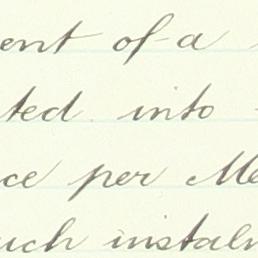 ent of a
ted into
ce per Me
uch instaln